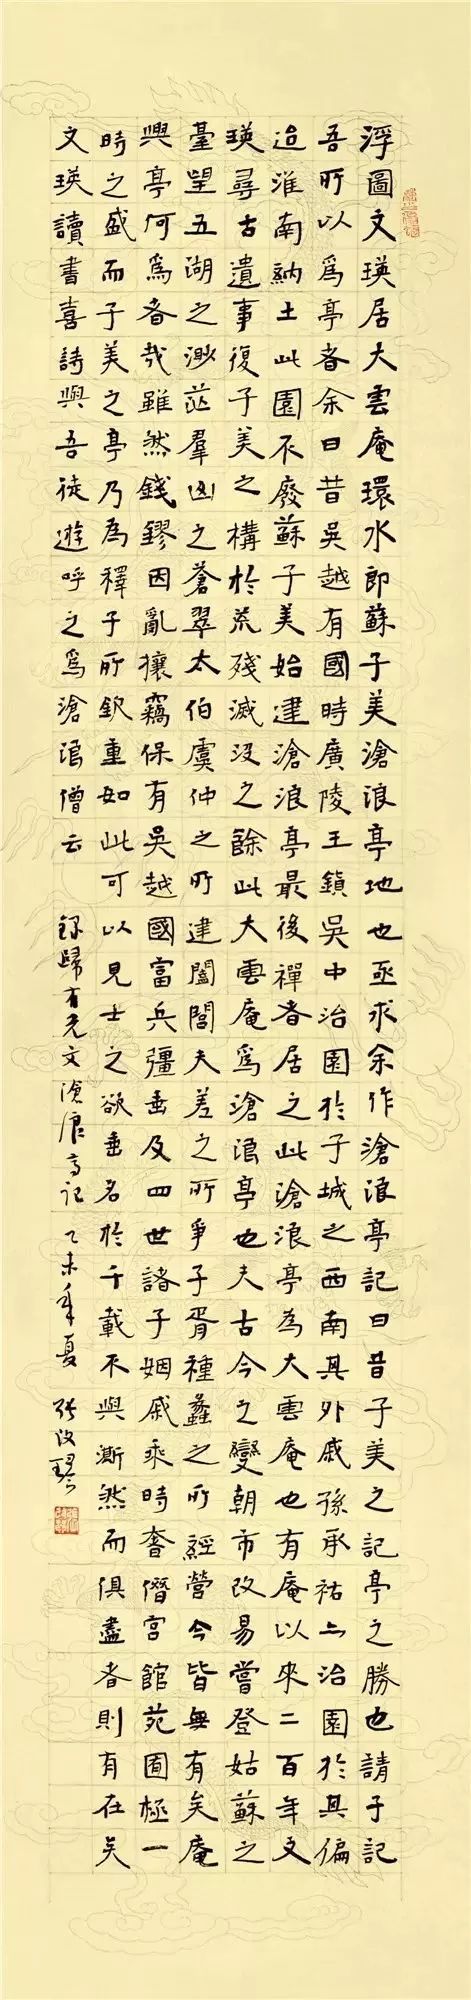 浮圖文瑛居大雲庵環水即蘇子美滄浪亭地也亟求余作滄浪亭記曰昔子美之記亭之勝也請子記
吾所以爲亭者余曰昔吳越有國時廣陵王鎮吳中治園於子城之西南其外戚孫承祐亦治園於其偏
迨淮南納土此園不廢蘇子美始建滄浪亭最後禪者居之此滄浪亭為大雲庵也有庵以來二百年文
瑛尋古遺事復子美之構於荒殘滅沒之餘此大雲庵爲滄浪亭也夫古今之變朝市改易嘗登姑蘇之
臺望五湖之渺茫羣山之蒼翠太伯虞仲之所建闔閭夫差之所爭子胥種蠡之所經營今皆無有矣庵
與亭何爲者哉雖然錢鏐因亂攘竊保有吳越國富兵彊垂及四世諸子姻戚乘時奢僭宮館苑囿極一
時之盛而子美之亭乃為釋子所欽重如此可以見士之欲垂名於千載不與澌然而俱盡者則有在矣
文瑛讀書喜詩與吾徒遊呼之爲滄浪僧云 錄歸有光文滄浪亭記 乙未年夏 張改琴